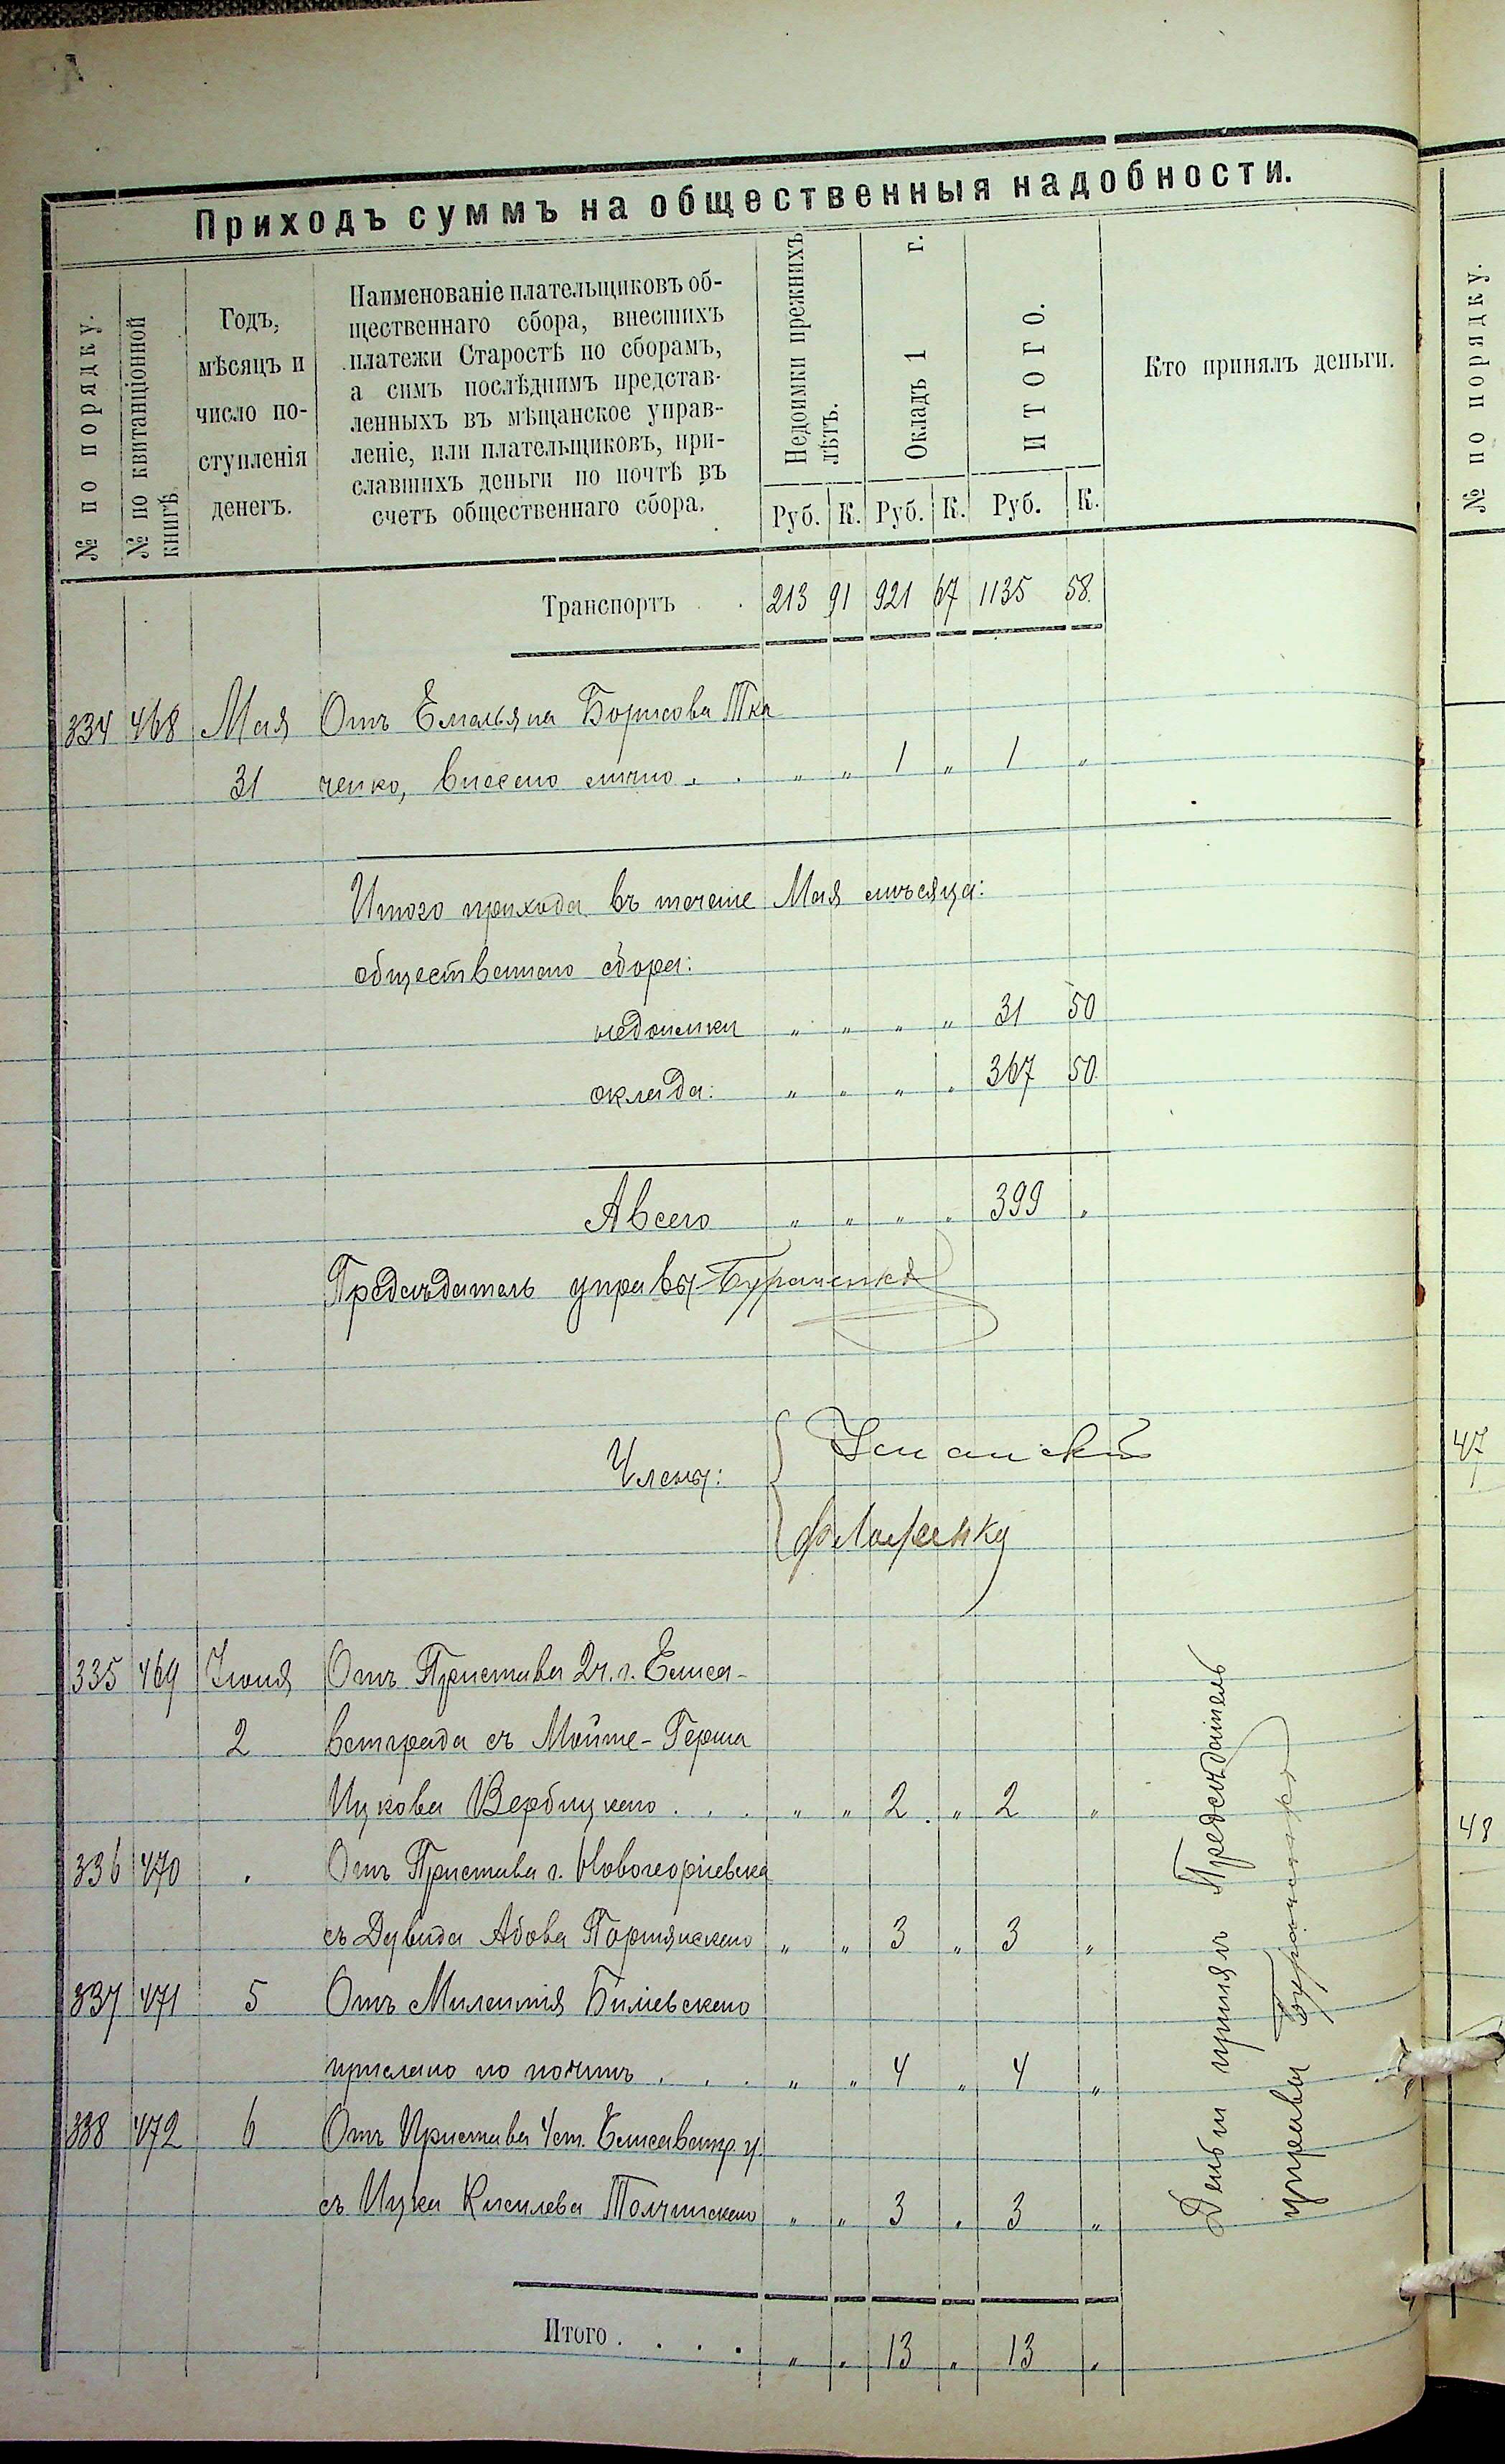 Приходъ суммъ на общественныя надобности.
№ по порядку.
№ по квитанціонной книгѣ.
Годъ, мѣсяцъ и число поступленія денегъ.
Наименованіе плательщиковъ об-
щественнаго сбора, внесшихъ
платежи Старостѣ по сборамъ,
а симъ послѣднимъ представ-
ленныхъ въ мѣщанское управ-
леніе, или плательщиковъ, при-
славшихъ деньги по почтѣ въ
счетъ общественнаго сбора.
Недоимки прежнихъ лѣтъ.
Окладъ 1 г.
ИТОГО.
Кто принялъ деньги.
Руб. К. Руб. К. Руб. К.
Транспортъ . . 213 91 921 67 1135 58.
334 468 Мая Отъ Емельяна Борисова Тка
31 ченко, внесено лично . . " " 1 " 1 "
Итого прихода въ теченіе Мая мѣсяца:
общественнаго сбора:
недоимки " " " " 31 50
оклада: " " " " 367 50.
А всего " " " " 399 "
Предсѣдатель управы
Члены:
335 469 Іюня Отъ Пристава 2ч. г. Елиса-
2 ветграда съ Мойше-Герша
Ицкова Вербицкаго . . . " " 2 " 2 "
336 470 " Отъ Пристава г. Новогеоргіевска
съ Дувида Абова Портянскаго " " 3 " 3 "
337 471 5 Отъ Милентія Билѣевскаго
прислано по почтѣ . . . " " 4 " 4 "
338 472 6 Отъ Пристава 4 ст. Елисаветгр. у.
съ Ицка Кисилева Толчинскаго " " 3 " 3 "
Итого . . . . " " 13 " 13 "
Деньги принялъ Предсѣдатель
управы
№ по порядку.
47
48